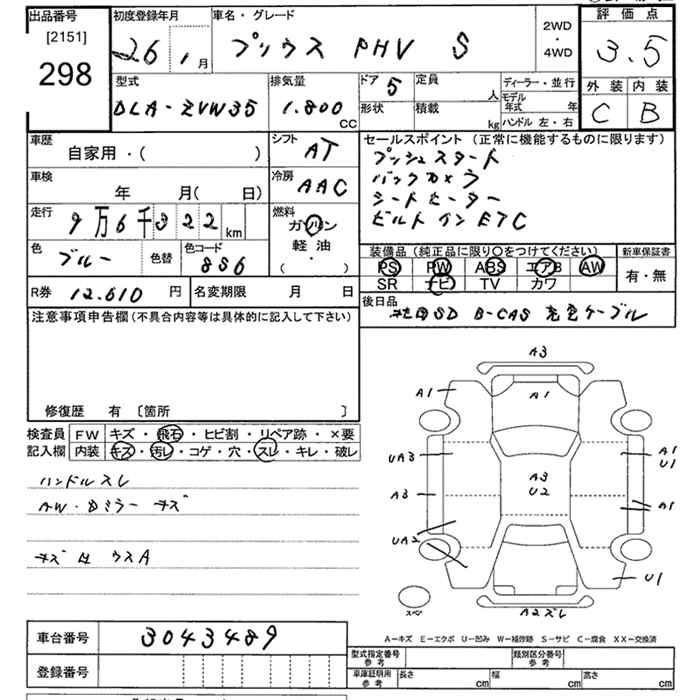 出品番号 初度登録年月 車名・グレード 2WD・4WD 評価点
[2151]
298 26 1月 プリウス PHV S 3.5
型式 排気量 ドア 定員 ディーラー・並行 外装 内装
5 人 モデル年式 年
DLA-ZVW35 1.800 CC 形状 積載 kg ハンドル 左・右 C B
車歴 自家用・( ) シフト AT セールスポイント(正常に機能するものに限ります)
プッシュスタート
車検 年 月( 日) 冷房 AAC バックカメラ
シートヒーター
走行 9万6千322km 燃料 ガソリン 軽油 ( ・ ) ビルトインETC
色 ブルー 色替 色コード 8S6 装備品(純正品に限り○をつけてください) 新車保証書
PS PW ABS エアB AW 有・無
SR ナビ TV カワ
R券 12.610円 名変期限 月 日 後日品
地図SD B-CAS 充電ケーブル
注意事項申告欄(不具合内容等は具体的に記入して下さい)
修復歴 有 [箇所 ]
検査員 FW キズ・飛石・ヒビ割・リペア跡・×要
記入欄 内装 キズ・汚レ・コゲ・穴・スレ・キレ・破レ
ハンドルスレ
AW・Dミラー キズ
ウスA
A3
A1 A1
UA3 A1
U1
A3
U2
A3 A1
UA2
U1
スペア A2スレ
A-キズ E-エクボ U-凹み W-補修跡 S-サビ C-腐食 XX-交換済
車台番号 3043489 型式指定番号 参考 類別区分番号 参考
登録番号 車庫証明用 参考 長さ cm 幅 cm 高さ cm